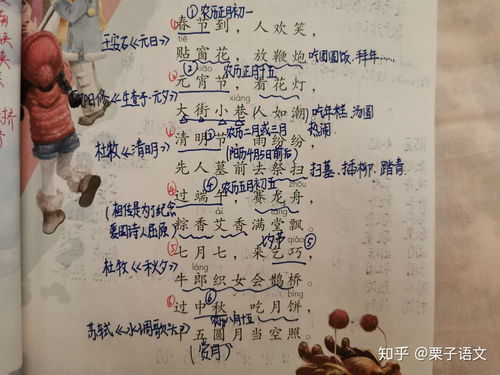 ①农历正月初一
①春节到，人欢笑，
王安石《元日》
tiē
贴窗花，放鞭炮
吃团圆饭、拜年……
xiāo
②农历正月十五
元宵节，看花灯，
欧阳修《生查子·元夕》
xiàng
大街小巷人如潮
吃年糕、汤圆
热闹
③农历二月或三月
清明节，雨纷纷，
(阳历4月5日前后)
杜牧《清明》
先人墓前去祭扫
扫墓、插柳、踏青
④农历五月初五
zhōu
④过端午，赛龙舟，
(相传是为了纪念
爱国诗人屈原)
táng
粽香艾香满堂飘。
乞巧
qiǎo
⑤
⑤七月七，来乞巧，
杜牧《秋夕》
láng
牛郎织女会鹊桥。
⑥
bǐng
⑥过中秋，吃月饼，
农历八月十五
苏轼《水调歌头》
十五圆月当空照。
(赏月)
知乎 @栗子语文